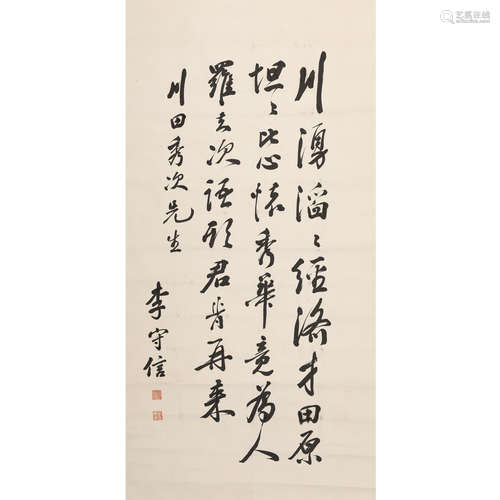 川湧滔〻經濟才田原
坦〻比心懷秀華竟為人
羅去次語君肯再来
川田秀次先生
李守信
艺狐在线